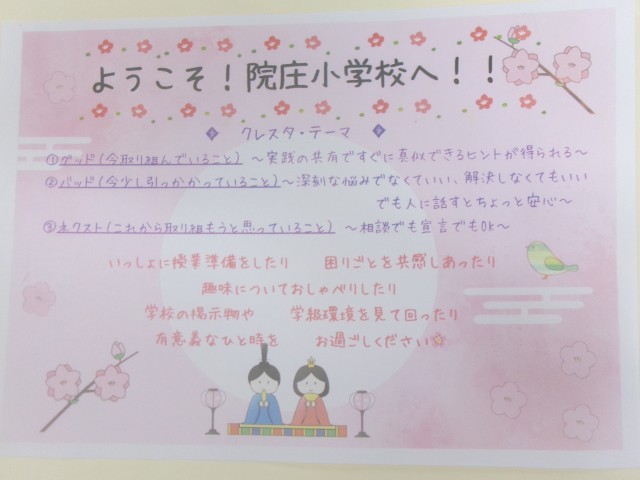 ようこそ！院庄小学校へ！！
クレスタ・テーマ
①グッド(今取り組んでいること) ～実践の共有ですぐに真似できるヒントが得られる～
②バッド(今少し引っかかっていること)～深刻な悩みでなくていい、解決しなくてもいい
でも人に話すとちょっと安心～
③ネクスト(これから取り組もうと思っていること) ～相談でも宣言でもOK～
いっしょに授業準備をしたり 困りごとを共感しあったり
趣味についておしゃべりしたり
学校の掲示物や 学級環境を見て回ったり
有意義なひと時を お過ごしください